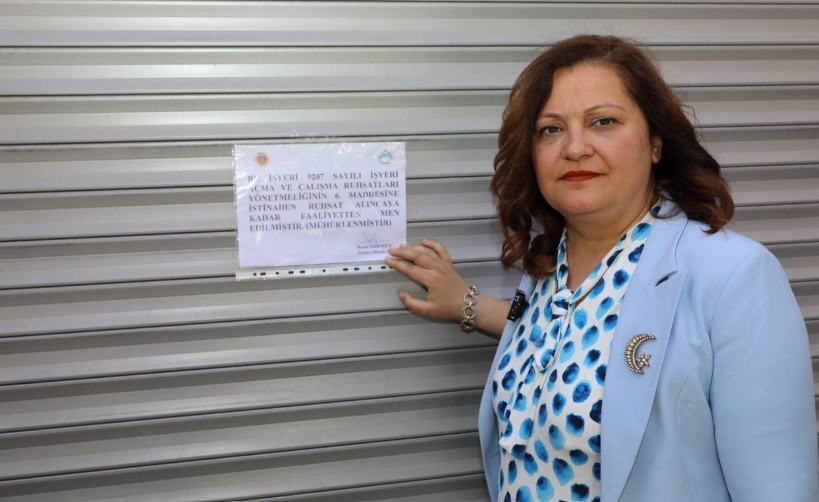 BU İŞYERİ 9207 SAYILI İŞYERİ
AÇMA VE ÇALIŞMA RUHSATLARI
YÖNETMELİĞİNİN 6. MADDESİNE
İSTİNADEN RUHSAT ALINCAYA
KADAR FAALİYETTEN MEN
EDİLMİŞTİR. (MÜHÜRLENMİŞTİR)
Zabıta